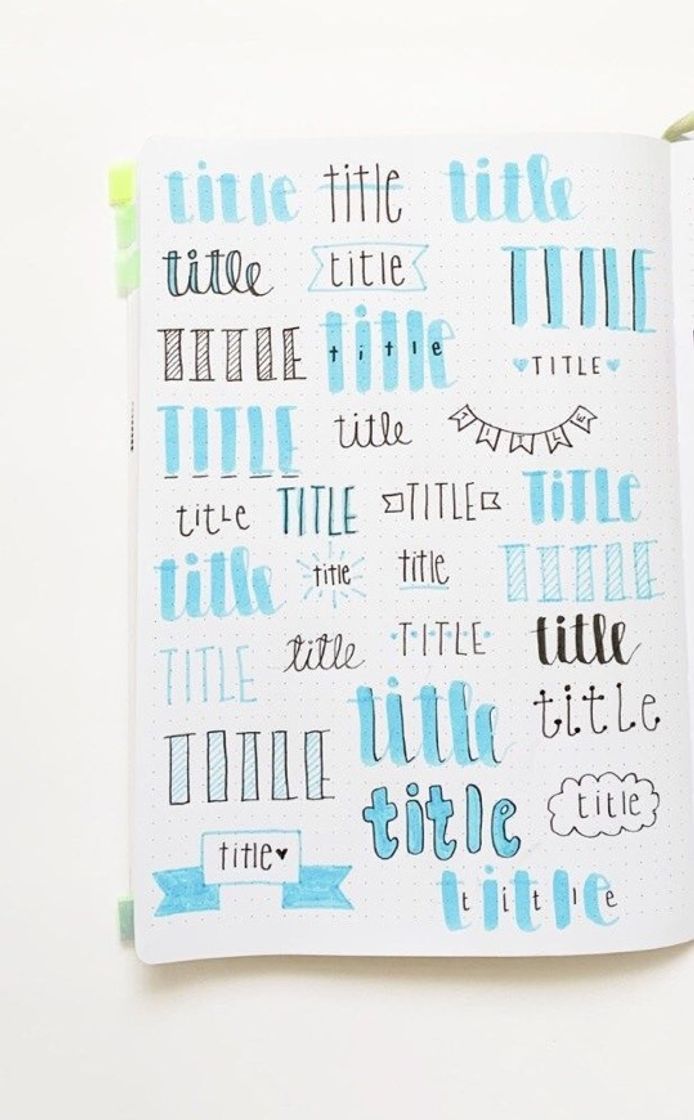 title title title
title title TITLE
TITLE title title ♥TITLE♥
TITLE title TITLE
titLe TITLE TITLE TiTLe
title title title TITLE
TITLE title TITLE title
title title
TITLE title title
title♥
title title